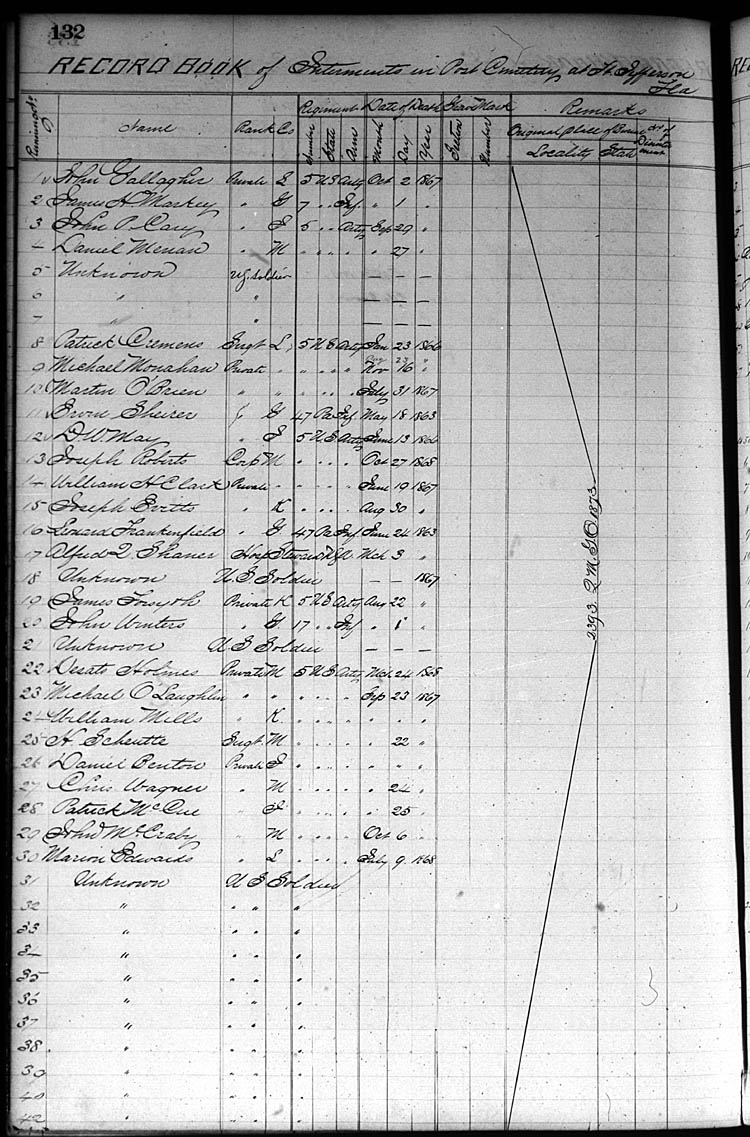 132
RECORD BOOK of Interments in Post Cemetery, at Ft. Jefferson
Fla
Regiment Date of Death Grave Mark Remarks
Name Rank Co Number State Arm Month Day Year Section Number Original place of Locality State
1 John Gallagher Private L 5 U S Arty Oct 2 1867
2 James A. Markey " G 7 " Inf. " 1 "
3 John P. Cary " I 5 " Arty Sep 29 "
4 Daniel Menan " M " " " " 27 "
5 Unknown U.S. Soldier — — —
6 " " — — —
7 " " — — —
8 Patrick Clemens Sergt L 5 U S Arty Jan 23 1866
9 Michael Monahan Private " " " " Nov 16 "
10 Martin O'Brien " " " " " July 31 1867
11 Ervin Sheirer " G 47 Pa Inf May 18 1863
12 D. W. May " I 5 U S Arty June 13 1866
13 Joseph Roberts Corp M " " " Oct 27 1868
14 William H Clark Private " " " " June 19 1867
15 Joseph Evetts " K " " " Aug 30 "
16 Leonard Frankenfield " G 47 Pa Inf June 24 1863
17 Alfred Q. Shaner Hosp Steward U.S.A. Mch 3 "
18 Unknown U. S Soldier — — 1867
19 James Forsyth Private K 5 U S Arty Aug 22 "
20 John Winters " G 17 " Inf " 1 "
21 Unknown U S Soldier — — —
22 Holmes Private M 5 U S Arty Mch 24 1868
23 Michael O Laughlin " " " " " Sep 23 1867
24 William Mills " K " " " " " "
25 H. Scheutte Sergt M " " " " 22 "
26 Daniel Benton Private I " " " " " "
27 Chris Wagner " M " " " " 24 "
28 Patrick McCue " I " " " " 25 "
29 John McCraby " M " " " Oct 6 "
30 Marion Edwards " L " " " July 9 1868
31 Unknown U S Soldier
32 " " " "
33 " " " "
34 " " " "
35 " " " "
36 " " " "
37 " " " "
38 " " " "
39 " " " "
40 " " " "
42 " " " "
2393. Q. M. G. O. 1873